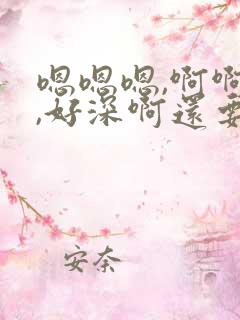 嗯嗯嗯,啊啊
,好深啊還要
安奈